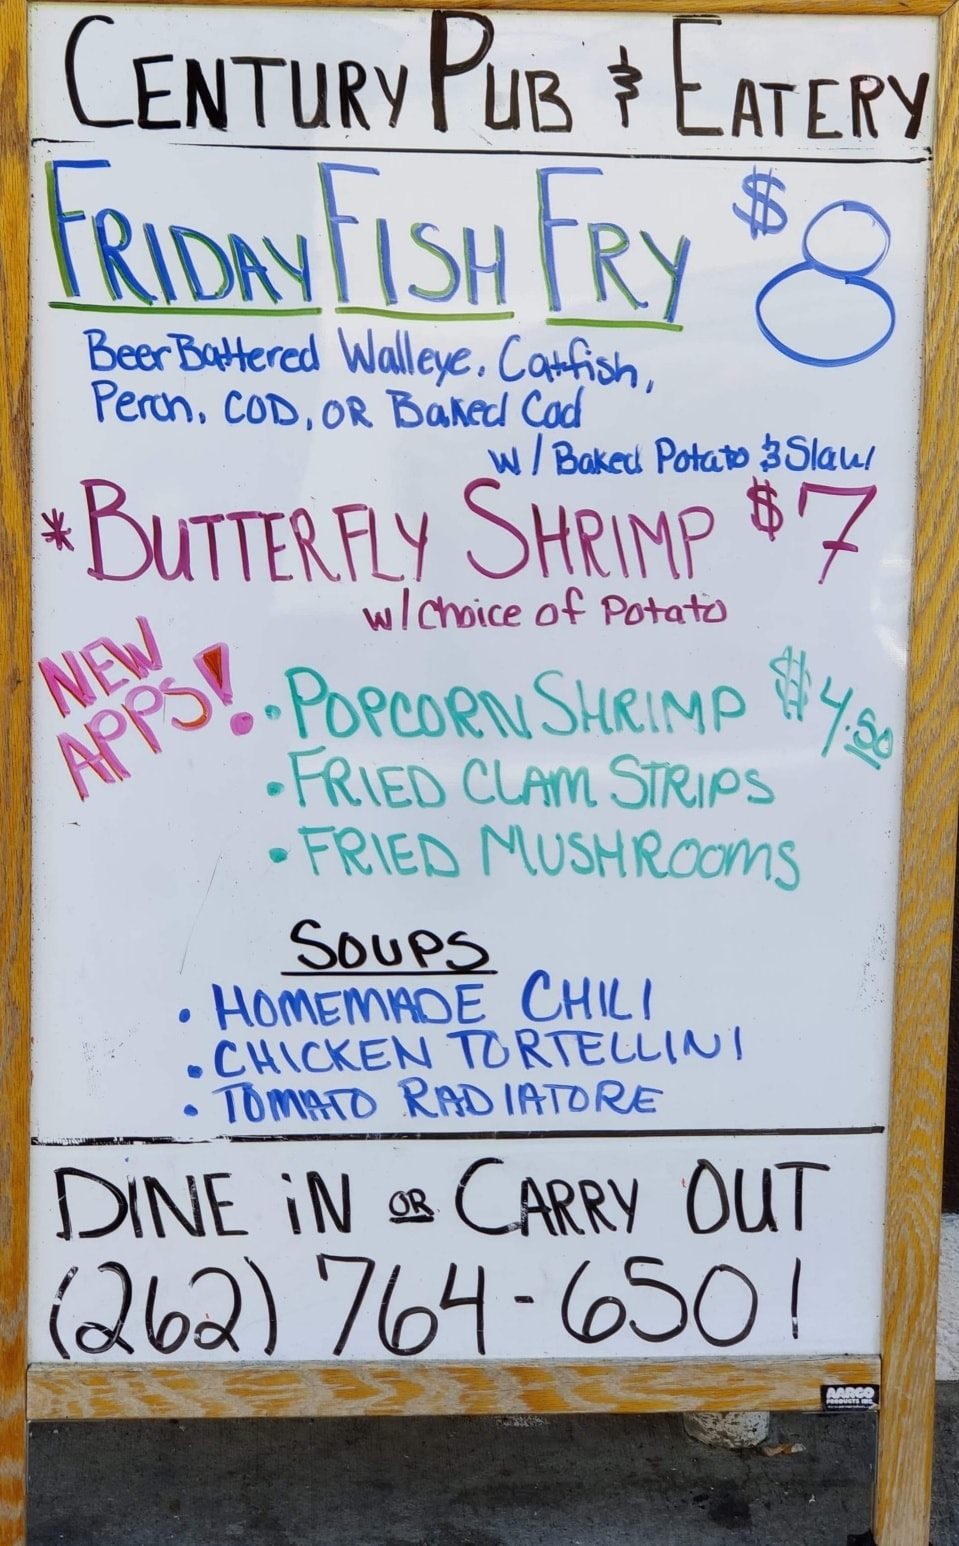 CENTURY PUB & EATERY
FRIDAY FISH FRY $8
Beer Battered Walleye, Catfish,
Perch, COD, OR Baked Cod
w/ Baked Potato & Slaw
*BUTTERFLY SHRIMP $7
w/ Choice of Potato
NEW
APPS!
• POPCORN SHRIMP $4.50
• FRIED CLAM STRIPS
• FRIED MUSHROOMS
SOUPS
• HOMEMADE CHILI
• CHICKEN TORTELLINI
• TOMATO RADIATORE
DINE iN OR CARRY OUT
(262) 764-6501
AARCO
PRODUCTS INC.